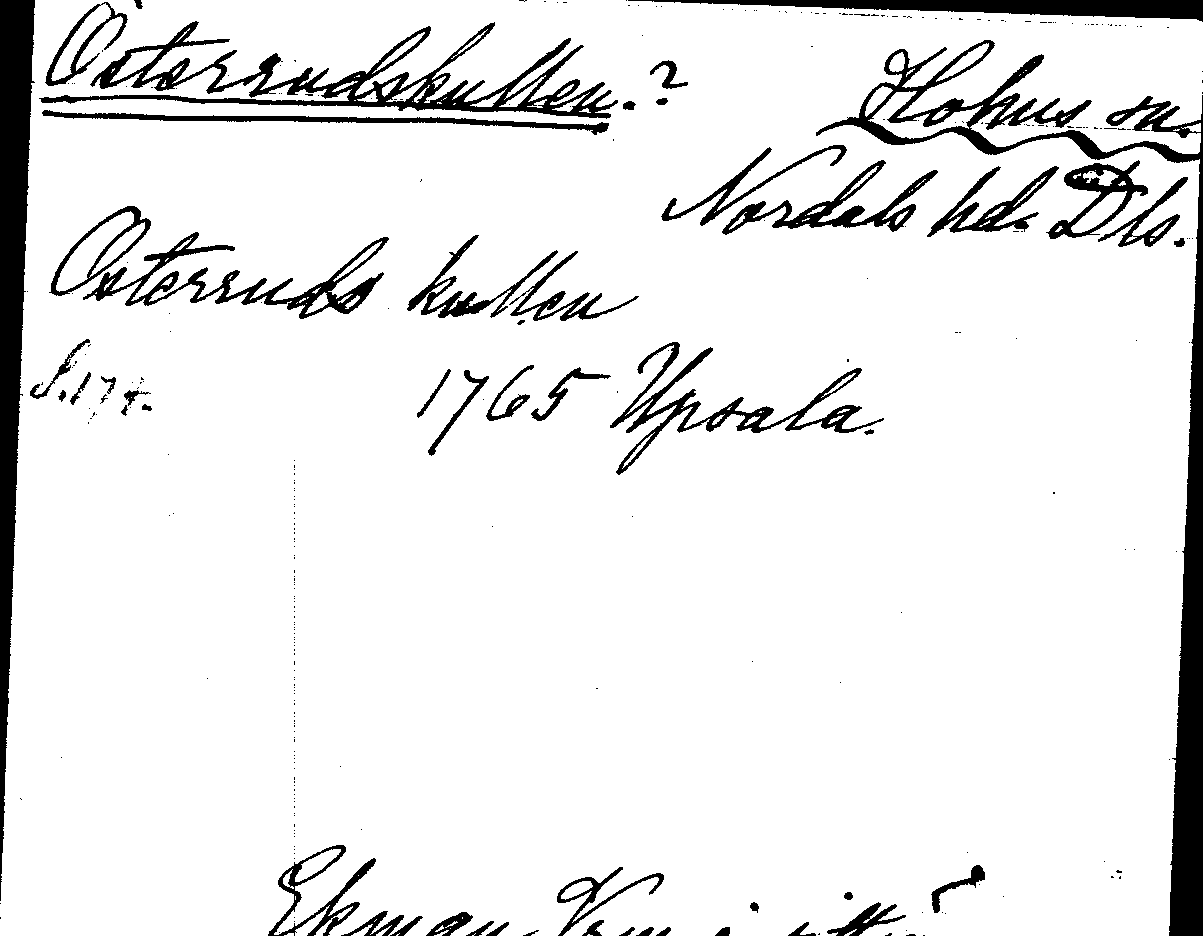 Österrudskullen.?
Hohus sn.
Nordals hd. Dls.
Österruds kullen
S. 174.
1765 Upsala.
Ekman Verm. i sitt